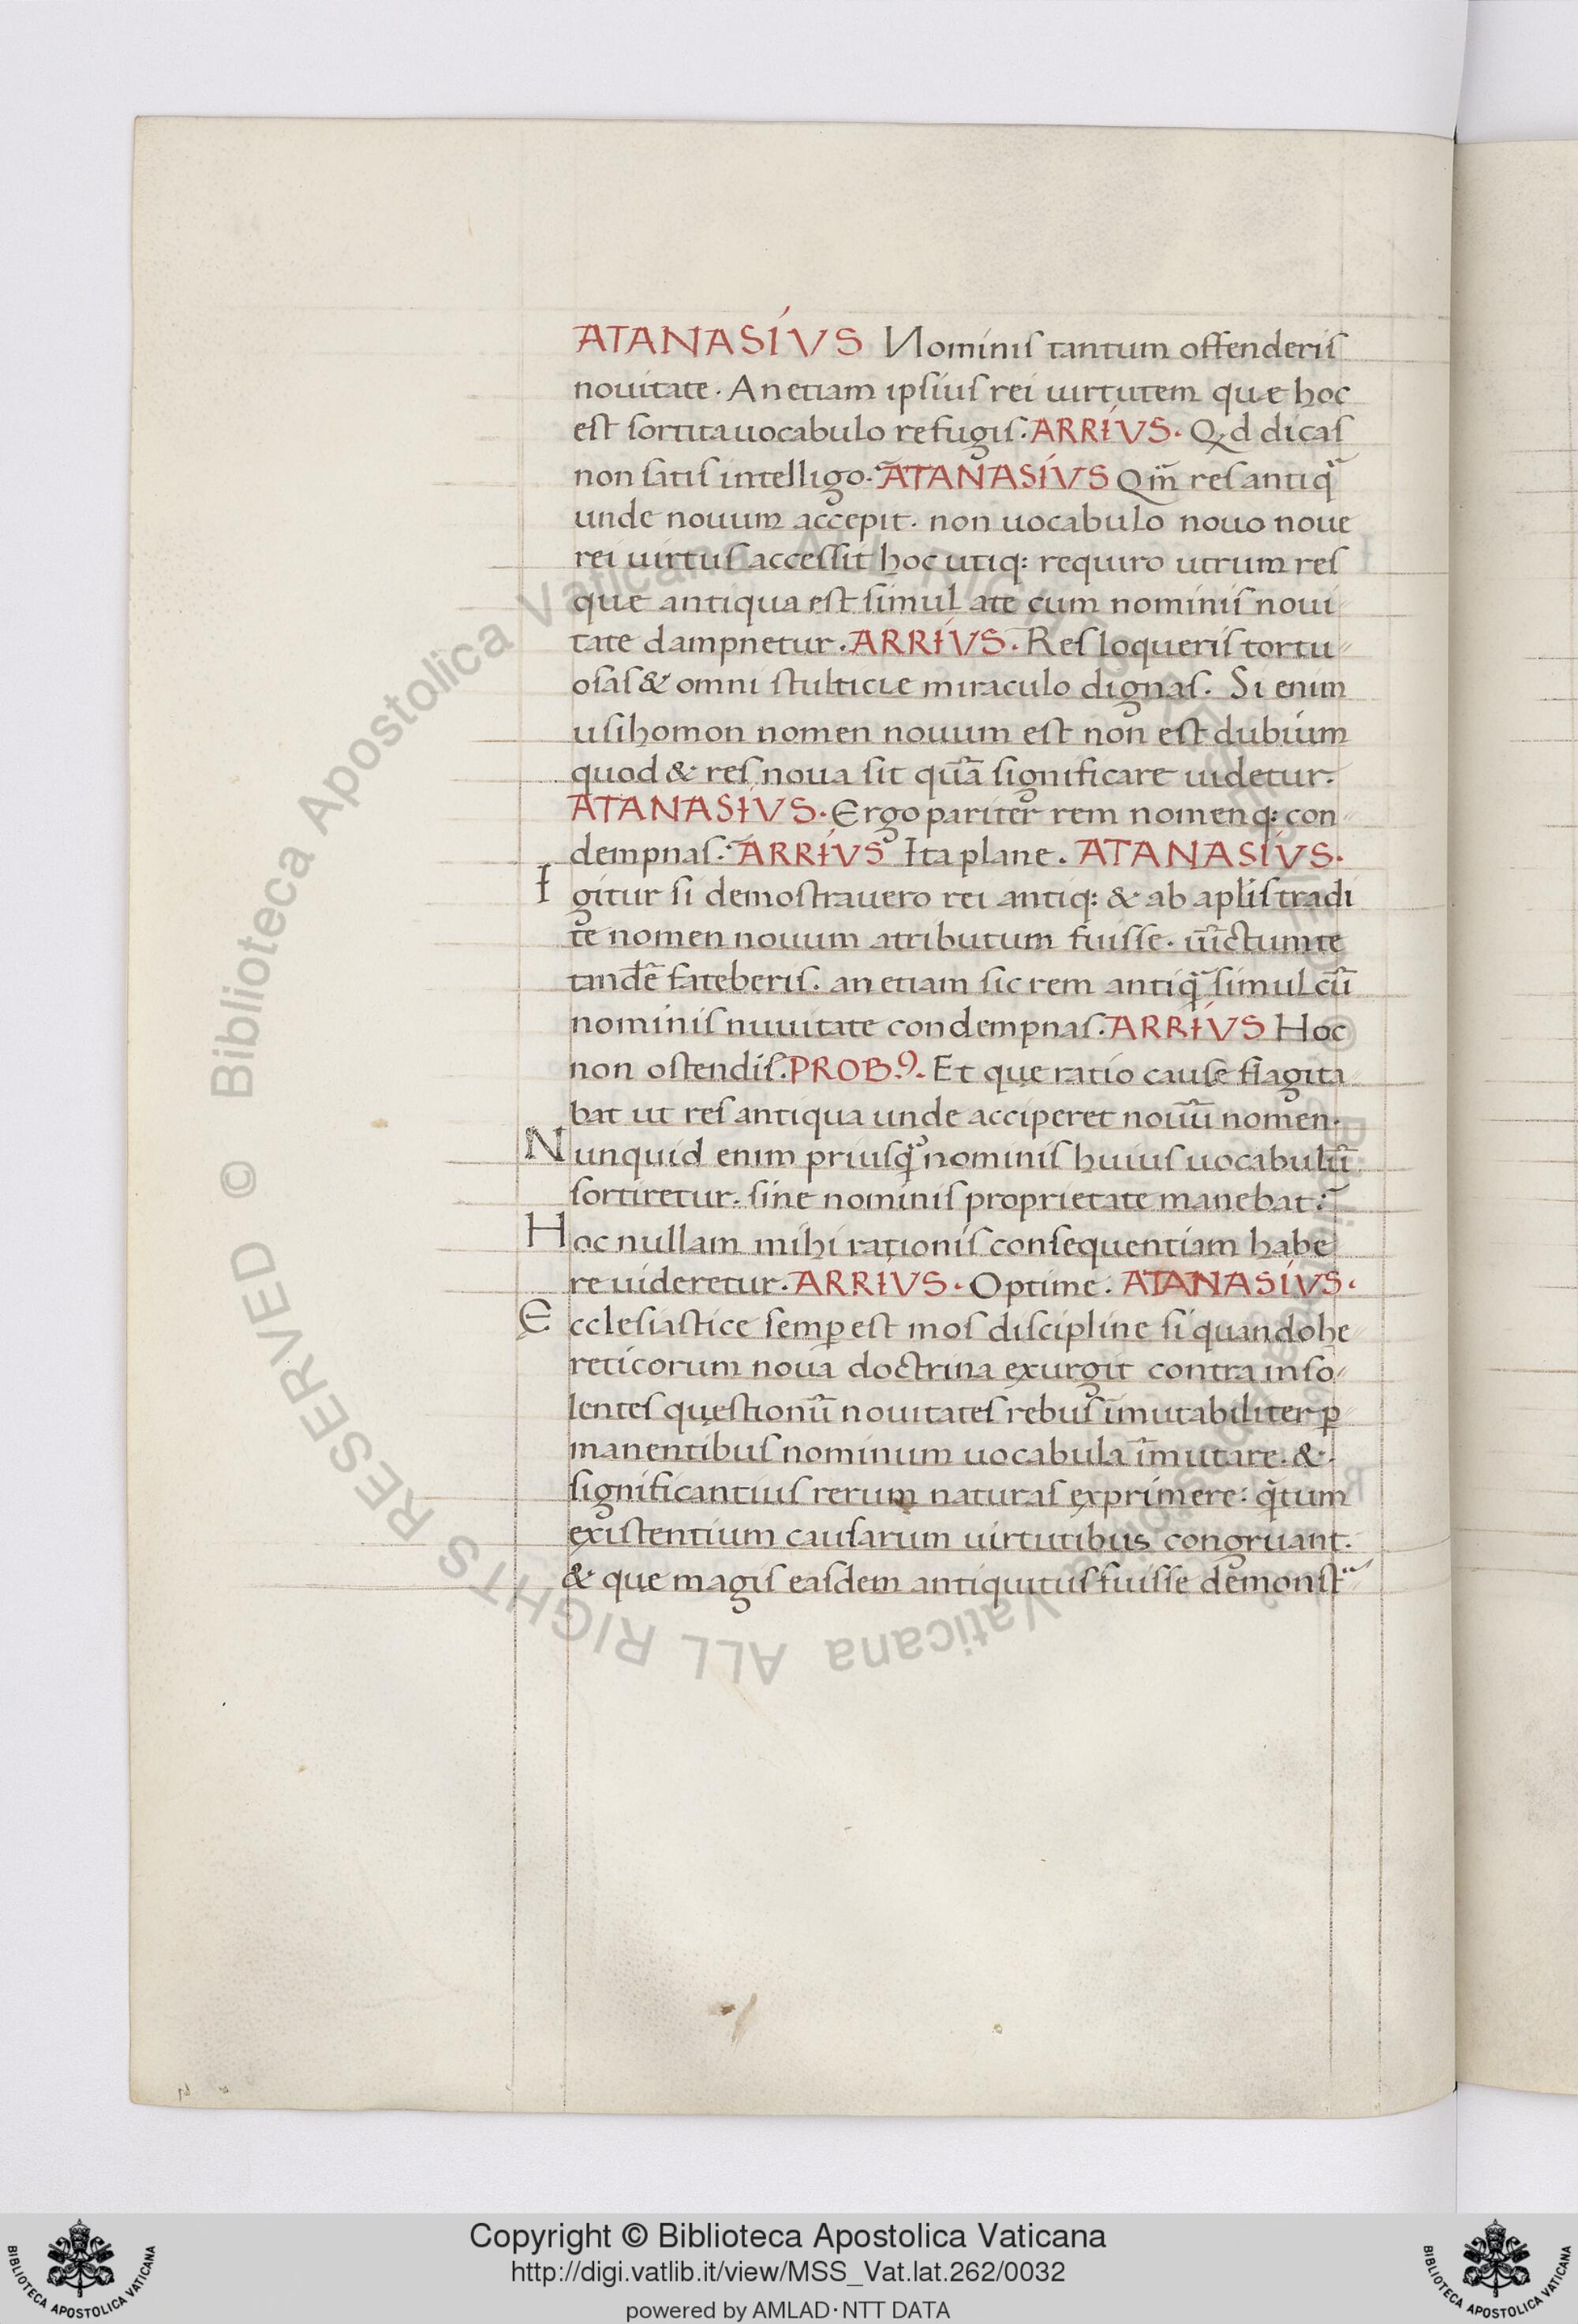 ATANASIVS Nominis tantum offenderis
nouitate. An etiam ipsius rei uirtutem que hoc
est sortita uocabulo refugis. ARRIVS. Qd dicas
non satis intelligo. ATANASIVS Qm̄ res antiqᷓ
unde nouum accepit. non uocabulo nouo noue
rei uirtus accessit hoc utiq: requiro utrum res
que antiqua est simul a te cum nominis noui
tate dampnetur. ARRIVS. Res loqueris tortu
osas & omni stulticie miraculo dignas. Si enim
usihomon nomen nouum est non est dubium
quod & res noua sit quā significare uidetur.
ATANASIVS. Ergo pariter rem nomenq: con
dempnas. ARRIVS Ita plane. ATANASIVS.
Igitur si demostrauero rei antiq: & ab aplis tradi
te nomen nouum atributum fuisse. uīctum te
tandē fateberis. an etiam sic rem antiqᷓ simul cū
nominis nuuitate condempnas. ARRIVS Hoc
non ostendis. PROBꝰ. Et que ratio cause flagita
bat ut res antiqua unde acciperet nouū nomen.
Nunquid enim priusqᷓ nominis huius uocabulū
sortiretur. sine nominis proprietate manebat:
Hoc nullam mihi rationis consequentiam habe
re uideretur. ARRIVS. Optime. ATANASIVS.
Ecclesiastice semꝑ est mos discipline si quando he
reticorum noua doctrina exurgit contra inso
lentes questionū nouitates rebus īmutabiliter ꝑ
manentibus nominum uocabula īmutare. &
significantius rerum naturas exprimere: qᷓtum
existentium causarum uirtutibus congruant.
& que magis easdem antiquitus fuisse demonst̃
Copyright © Biblioteca Apostolica Vaticana
http://digi.vatlib.it/view/MSS_Vat.lat.262/0032
powered by AMLAD·NTT DATA
BIBLIOTECA APOSTOLICA VATICANA
BIBLIOTECA APOSTOLICA VATICANA
© Biblioteca Apostolica Vaticana ALL RIGHTS RESERVED